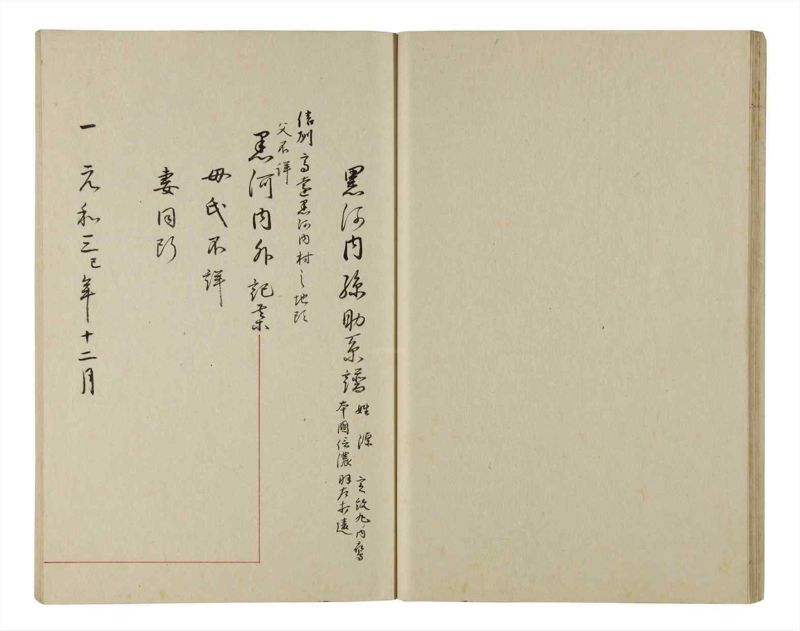 黒河内孫助系譜
姓 源 定紋丸ノ内鷹
本國信濃
信州高遠黒河内村之地頭
父不詳
黒河内外記某
母氏不詳
妻同断
一 元和三巳年十二月